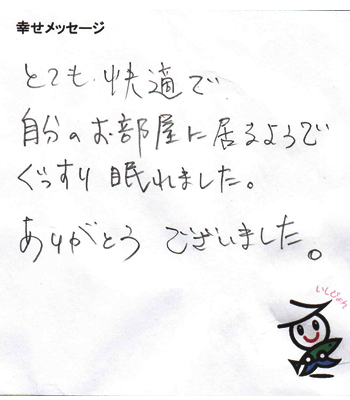 幸せメッセージ
とても快適で
自分のお部屋に居るようで
ぐっすり眠れました。
ありがとうございました。
いしぴょん